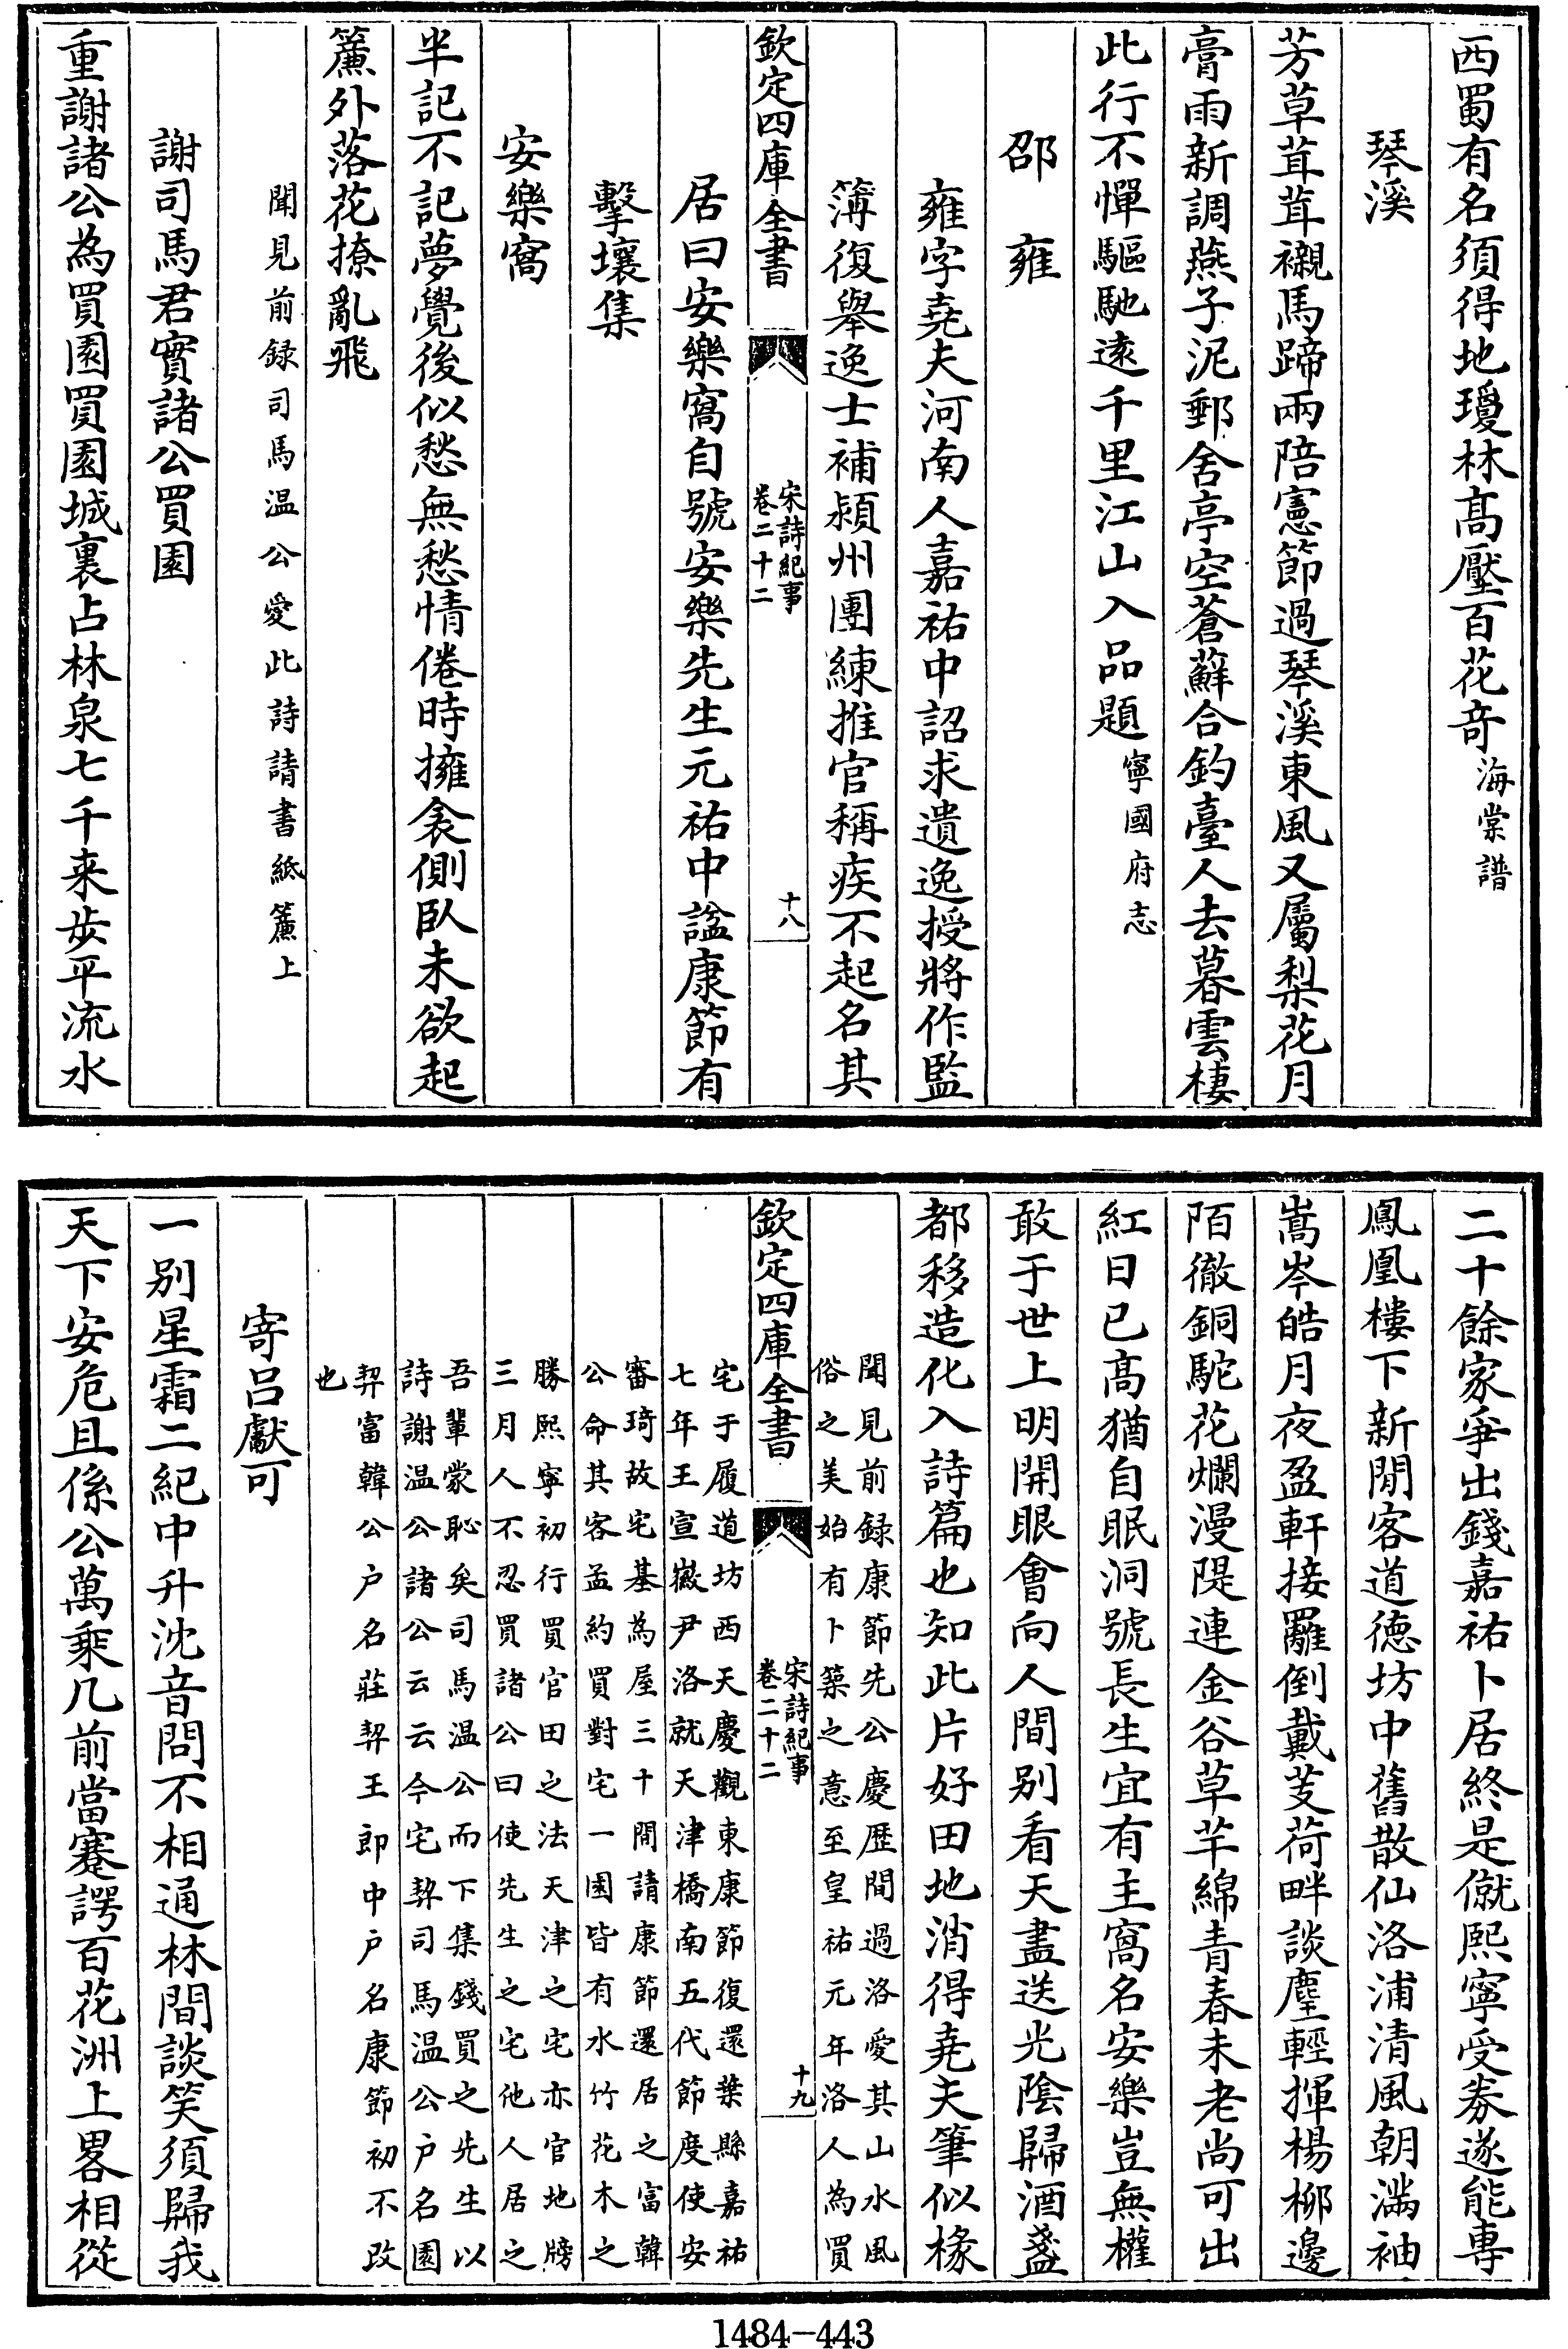 西蜀有名須得地瓊林髙壓百花竒海棠譜
琴溪
芳草茸茸襯馬蹄兩陪憲節過琴溪東風又屬梨花月
膏雨新調燕子泥郵舍亭空蒼蘚合釣臺人去暮雲棲
此行不憚驅馳逺千里江山入品題寧國府志
邵雍
雍字堯夫河南人嘉祐中詔求遺逸授將作監
簿復舉逸士補潁州團練推官稱疾不起名其
欽定四庫全書
宋詩紀事
卷二十二
十八
居曰安樂窩自號安樂先生元祐中諡康節有
擊壤集
安樂窩
半記不記夢覺後似愁無愁情倦時擁衾側臥未欲起
簾外落花撩亂飛
聞見前録司馬温公愛此詩請書紙簾上
謝司馬君實諸公買園
重謝諸公為買園買園城裏占林泉七千来步平流水
二十餘家爭出錢嘉祐卜居終是僦熙寧受券遂能専
鳳凰樓下新閒客道徳坊中舊散仙洛浦清風朝滿袖
嵩岑皓月夜盈軒接䍦倒戴芰荷畔談麈輕揮楊柳邊
陌徹銅駝花爛漫隄連金谷草芊綿青春未老尚可出
紅日已髙猶自眠洞號長生宜有主窩名安樂豈無權
敢于世上明開眼會向人間别看天盡送光陰歸酒盞
都移造化入詩篇也知此片好田地消得堯夫筆似椽
聞見前録康節先公慶歴間過洛愛其山水風
俗之美始有卜築之意至皇祐元年洛人為買
欽定四庫全書
宋詩紀事
卷二十二
十九
宅于履道坊西天慶觀東康節復還葉縣嘉祐
七年王宣徽尹洛就天津橋南五代節度使安
審琦故宅基為屋三十間請康節還居之富韓
公命其客孟約買對宅一園皆有水竹花木之
勝熙寧初行買官田之法天津之宅亦官地牓
三月人不忍買諸公曰使先生之宅他人居之
吾輩蒙恥矣司馬温公而下集錢買之先生以
詩謝温公諸公云云今宅契司馬温公户名園
契富韓公户名莊契王郎中户名康節初不改
也
寄吕獻可
一别星霜二紀中升沈音問不相通林間談笑須歸我
天下安危且係公萬乘几前當蹇諤百花洲上畧相從
1484-443